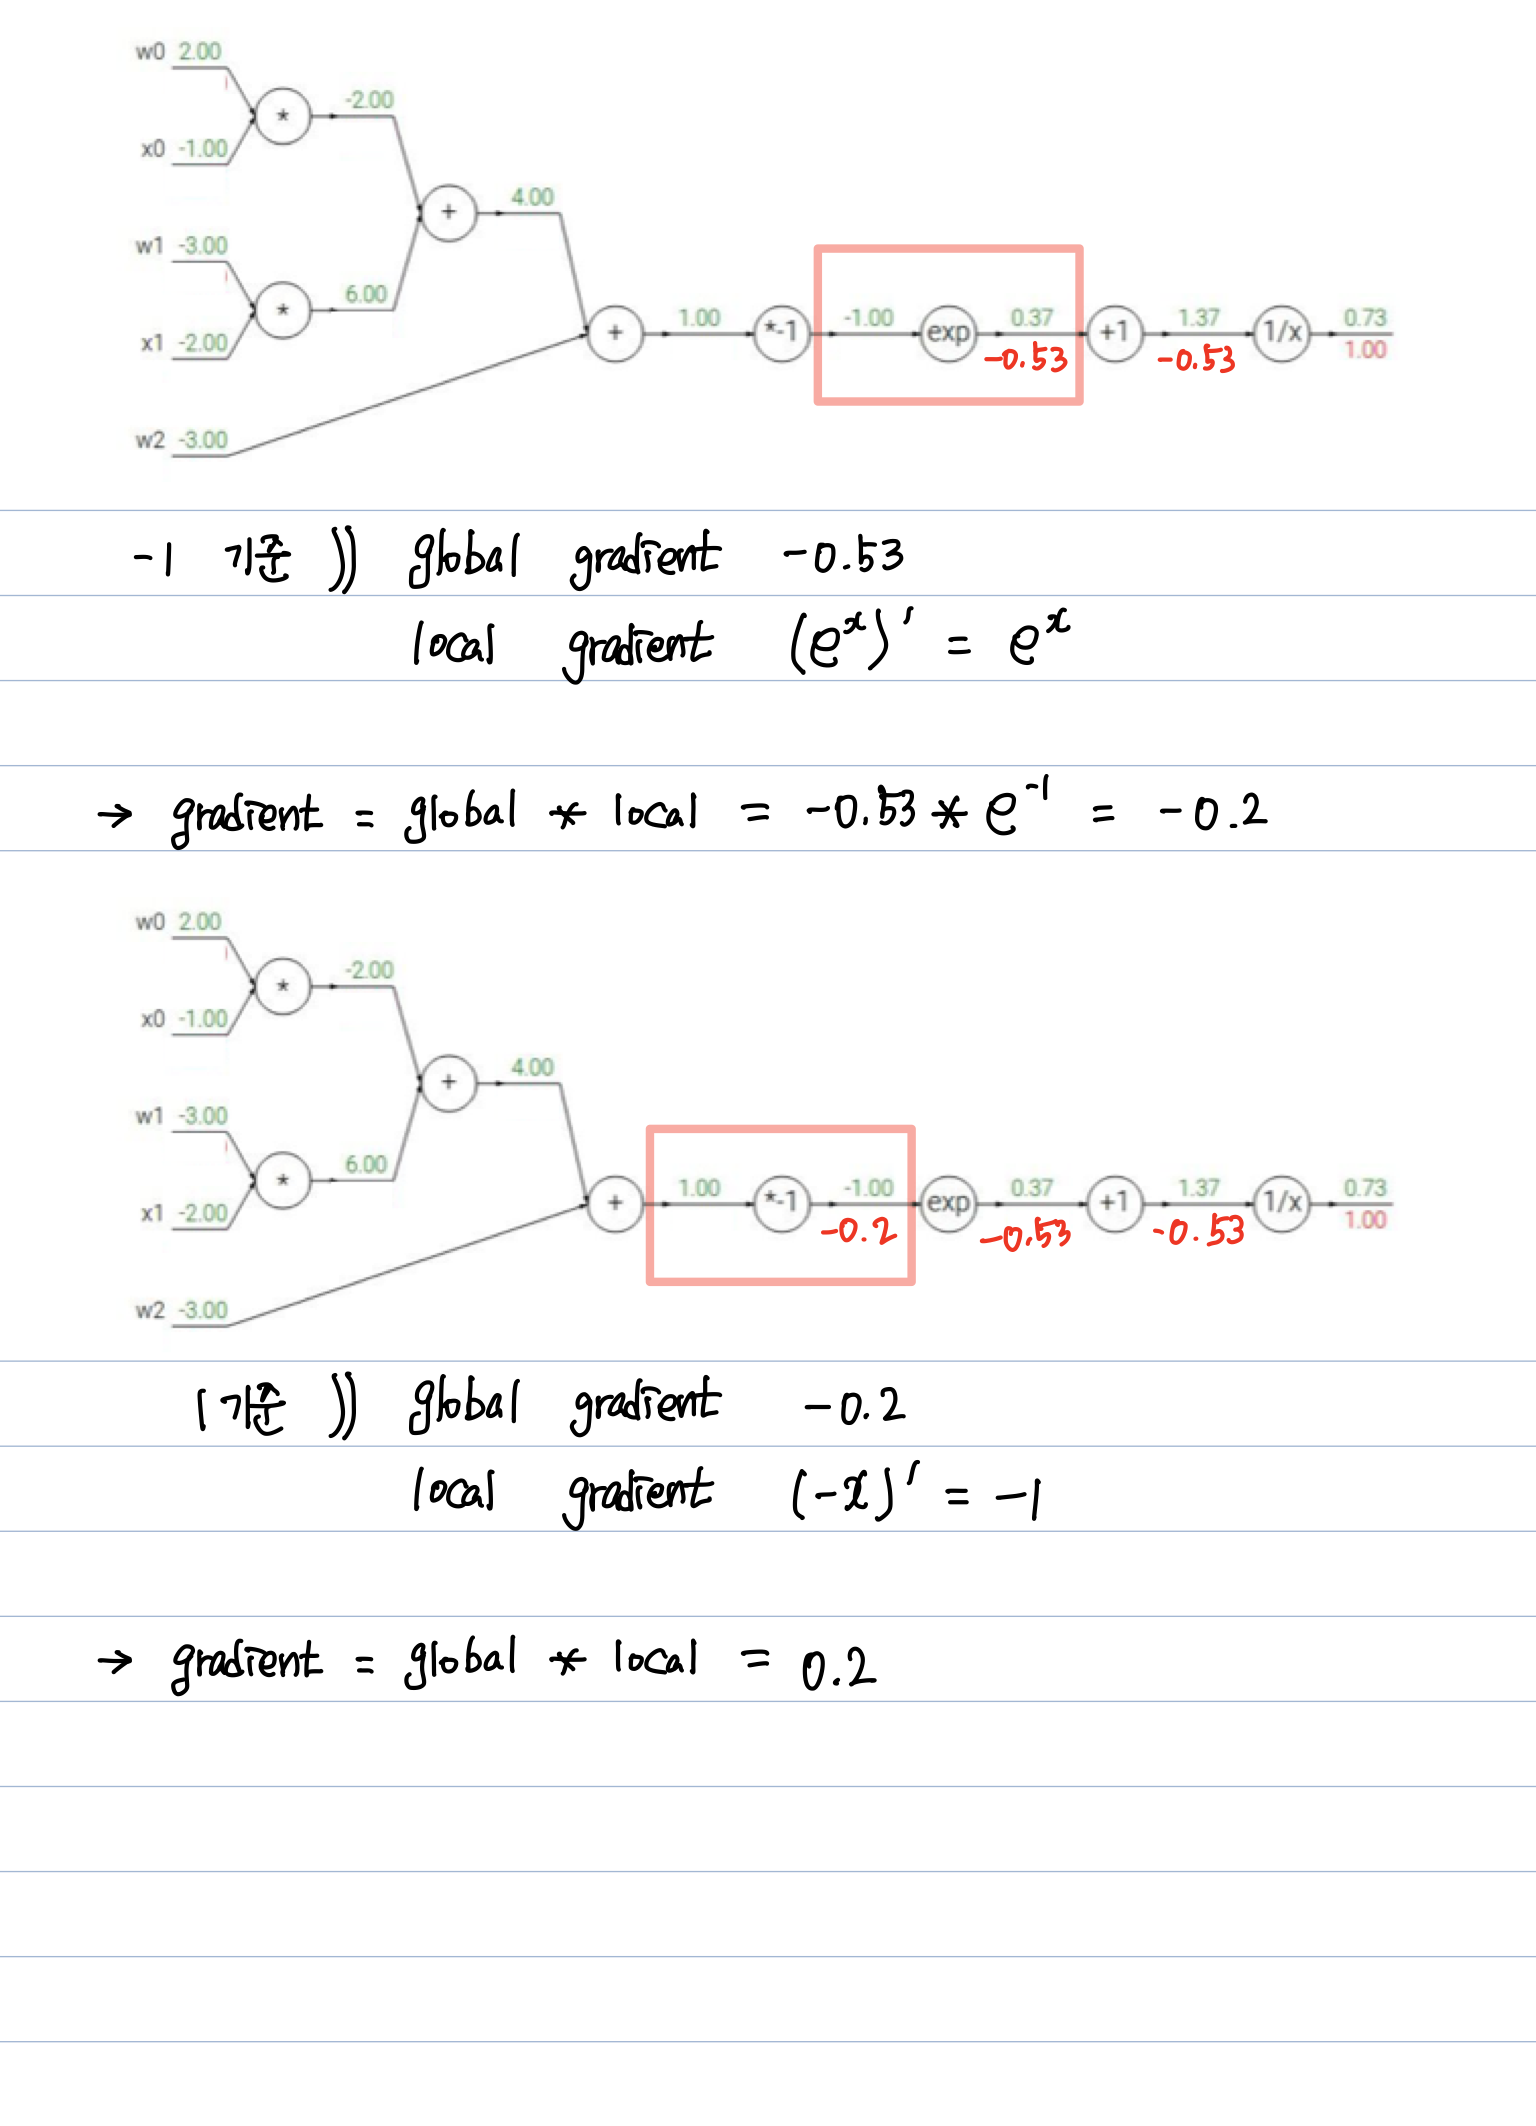 w0 2.00
-2.00
*
x0 -1.00
4.00
+
w1 -3.00
6.00
*
x1 -2.00
+ 1.00 *-1 -1.00 exp 0.37 +1 1.37 1/x 0.73
-0.53 -0.53 1.00
w2 -3.00
-1 기준 )) global gradient -0.53
local gradient (eˣ)' = eˣ
→ gradient = global * local = -0.53 * e⁻¹ = -0.2
w0 2.00
-2.00
*
x0 -1.00
4.00
+
w1 -3.00
6.00
*
x1 -2.00
+ 1.00 *-1 -1.00 exp 0.37 +1 1.37 1/x 0.73
-0.2 -0.53 -0.53 1.00
w2 -3.00
1 기준 )) global gradient -0.2
local gradient (-x)' = -1
→ gradient = global * local = 0.2